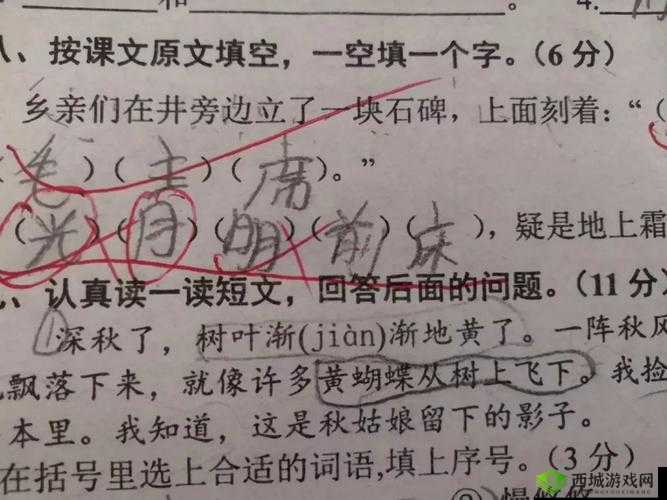 和 。 4.
八、按课文原文填空，一空填一个字。（6分）
乡亲们在井旁边立了一块石碑，上面刻着：“（
（毛）（主）（席）。”
（光）（月）（明）（前）（床），疑是地上霜
、认真读一读短文，回答后面的问题。（11分）
①深秋了，树叶渐(jiàn)渐地黄了。一阵秋风
飘落下来，就像许多黄蝴蝶从树上飞下。我捡
本里。我知道，这是秋姑娘留下的影子。
在括号里选上合适的词语,填上序号。（3分）
西城游戏网